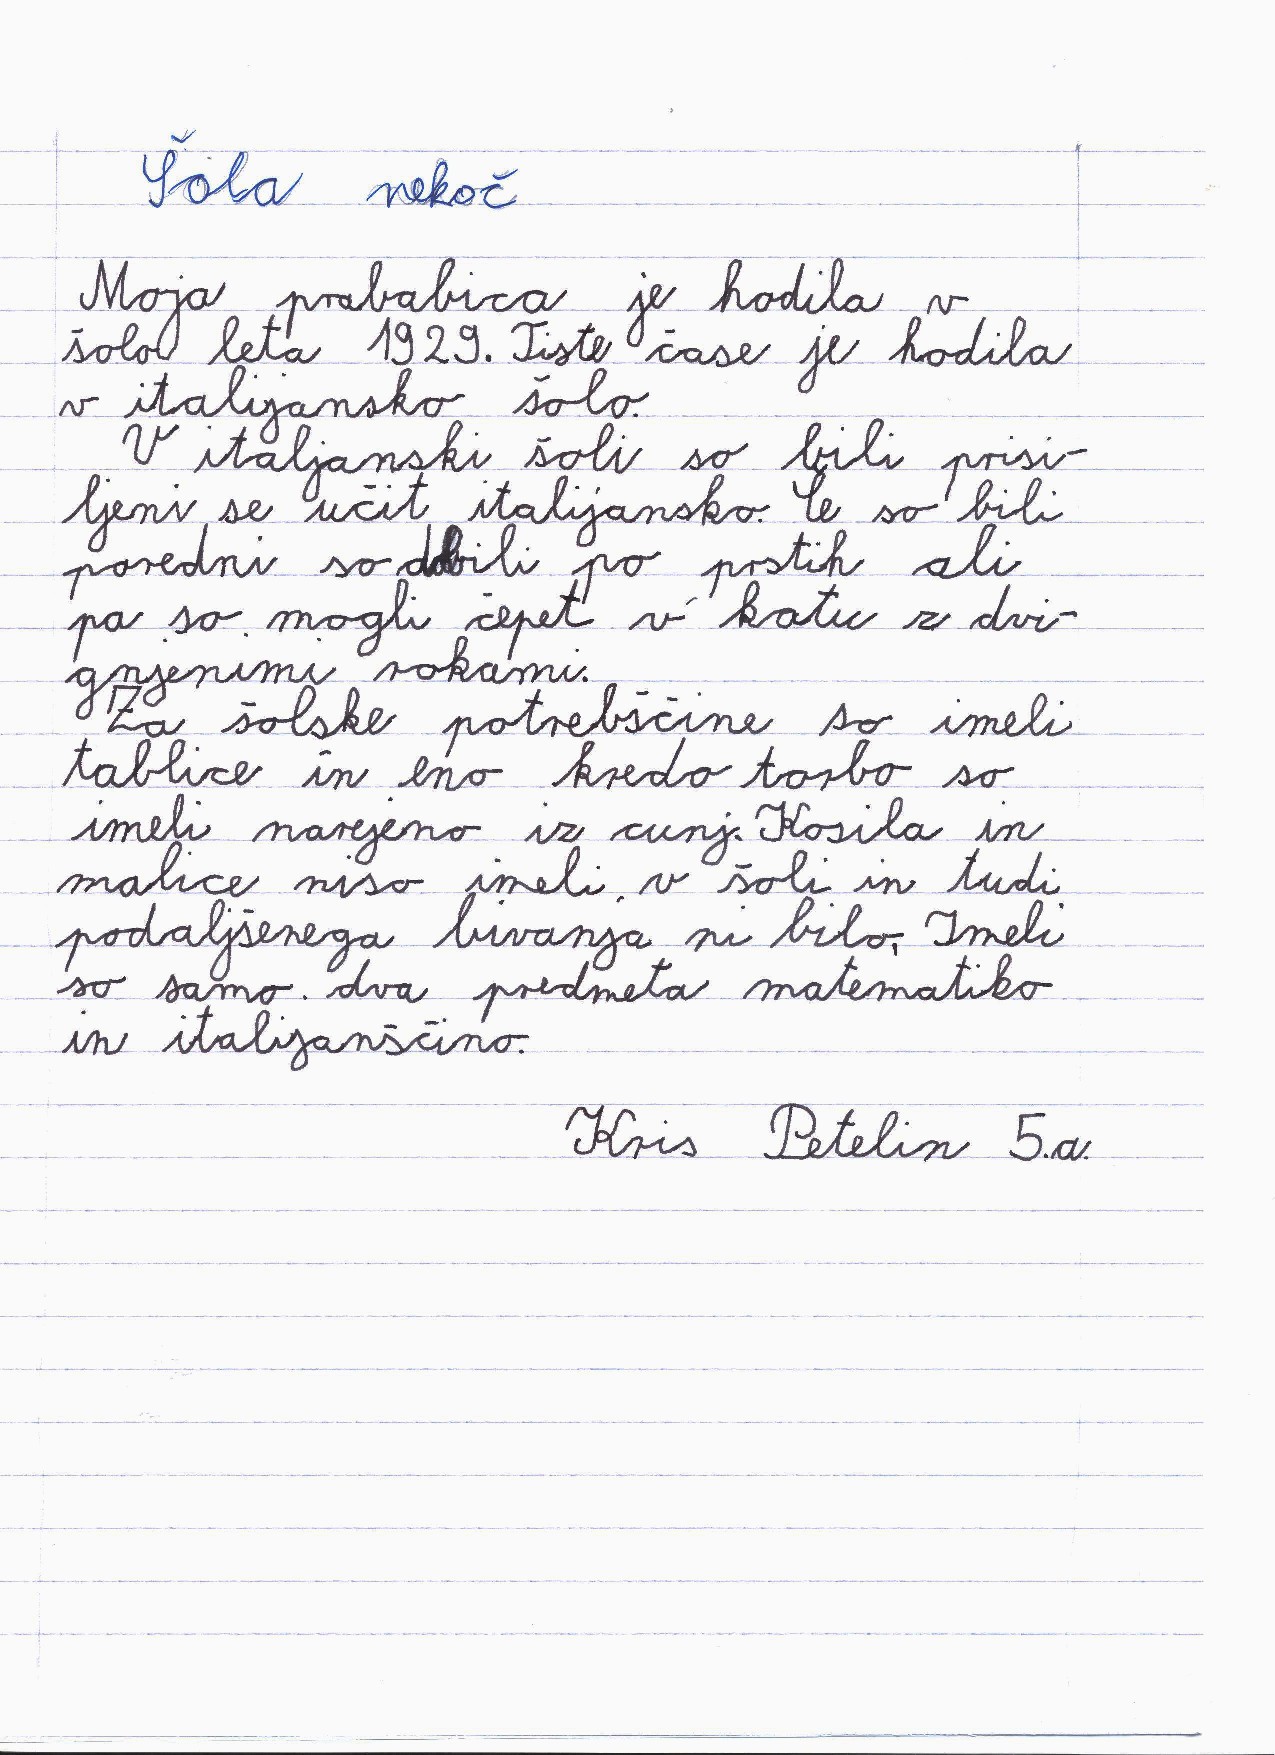 Šola nekoč
Moja prababica je hodila v
šolo leta 1929. Tiste čase je hodila
v italijansko šolo.
V italjanski šoli so bili prisi-
ljeni se učit italijansko. Če so bili
poredni so dobili po prstih ali
pa so mogli čepet v katu z dvi-
gnjenimi rokami.
Za šolske potrebščine so imeli
tablice in eno kredo torbo so
imeli narejeno iz cunj. Kosila in
malice niso imeli v šoli in tudi
podaljšenega bivanja ni bilo, Imeli
so samo dva predmeta matematiko
in italijanščino.
Kris Petelin 5.a.